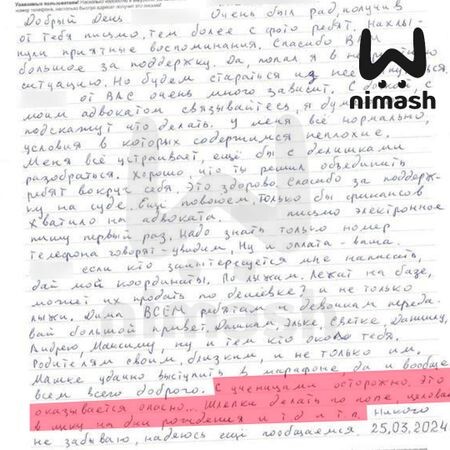 Уважаемые пользователи!
Добрый день. Очень был рад, получив
от тебя письмо, тем более с фото ребят. Нахлы-
нули приятные воспоминания. Спасибо
большое за поддержку. Да, попал я в
ситуацию. Но будем стараться из нее
от ВАС очень много зависит. С
моим адвокатом связывайтесь, я
подскажут что делать. У меня всё нормально,
условия в которых содержимся неплохие.
Меня всё устраивает, ещё бы с делишками
разобраться. Хорошо, что ты решил объединить
ребят вокруг себя. Это здорово. Спасибо за поддерж-
ку на суде. Ещё повоюем, только бы финансов
хватило на адвоката. письмо электронное
пишу первый раз. Надо знать только номер
телефона говорят - увидим, Ну и оплата - ваша.
если кто заинтересуется мне написать,
дай мой координаты. По лыжам. Лежат на базе,
может их продать по дешёвке? и не только
лыжи. Дима ВСЕМ ребятам и девчонкам переда-
вай большой привет. Дашкам, Эльке, Светке, Данилу,
Андрею, Максиму, ну и тем кто около тебя.
Родителям своим, близким, и не только им.
Машке удачно выступить в марафоне, да и вообще
всем всего доброго. С ученицами осторожно. Это
оказывается опасно... Шлепки делать по попе, целовать
в щёку на дни рождения и т.д и т.п. Никого
не забываю, надеюсь ещё пообщаемся. 25.03.2024
nimash
nimash